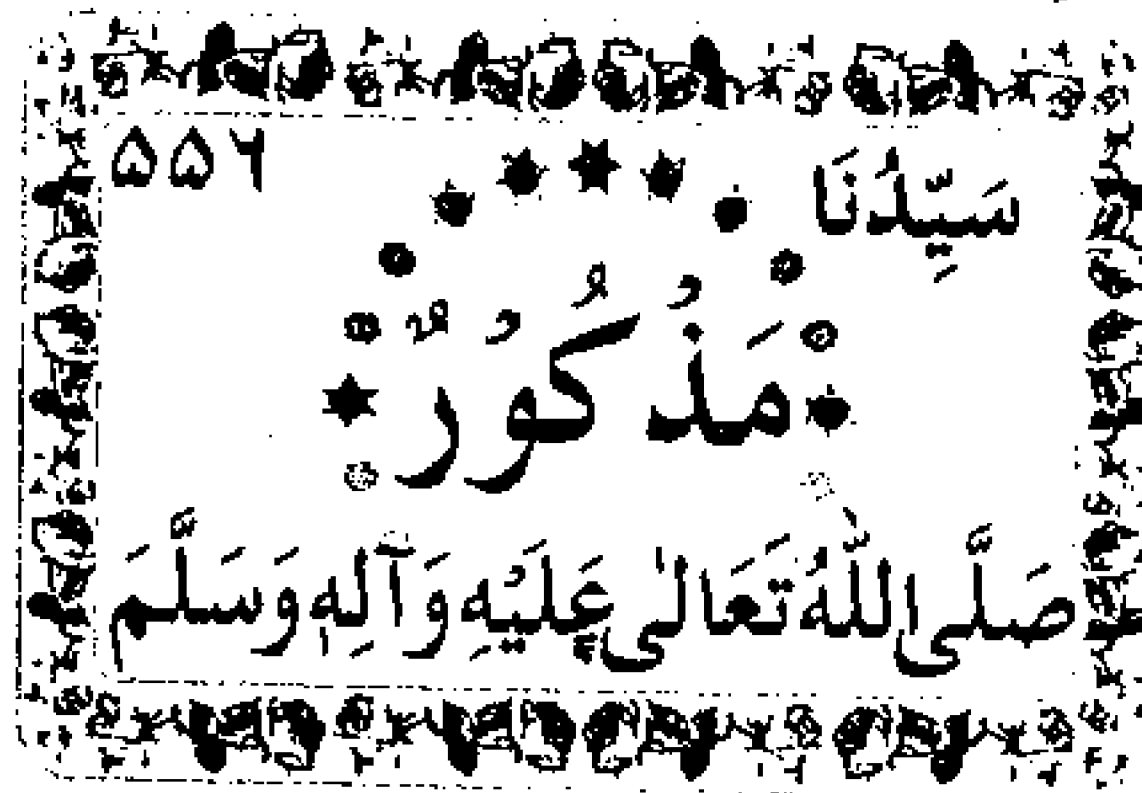 سَيِّدُنَا ۵۵۶
مَذْكُوْرٌ
صَلَّى اللّٰهُ تَعَالٰى عَلَيْهِ وَآلِهٖ وَسَلَّمَ